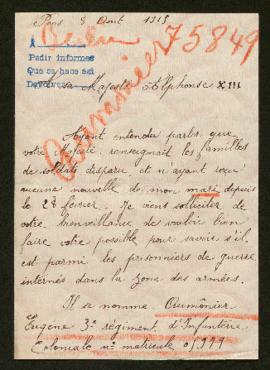 Paris 3 Aout 1915
75849
A
Pedir informes
Que se hace así
Devolver
Aumonier
Sa Majesté Alphonse XIII
Ayant entendu parler, que
votre Majesté, renseignait les familles
de soldats disparus, et n'ayant reçu
aucune nouvelle de mon mari depuis
le 28 février. Je viens solliciter de
votre bienveillance de vouloir bien
faire votre possible pour savoir s'il
est parmi les prisonniers de guerre
internés dans la zone des armées.
Il se nomme Aumônier
Eugène 3e régiment d'Infanterie
Coloniale n° matricule